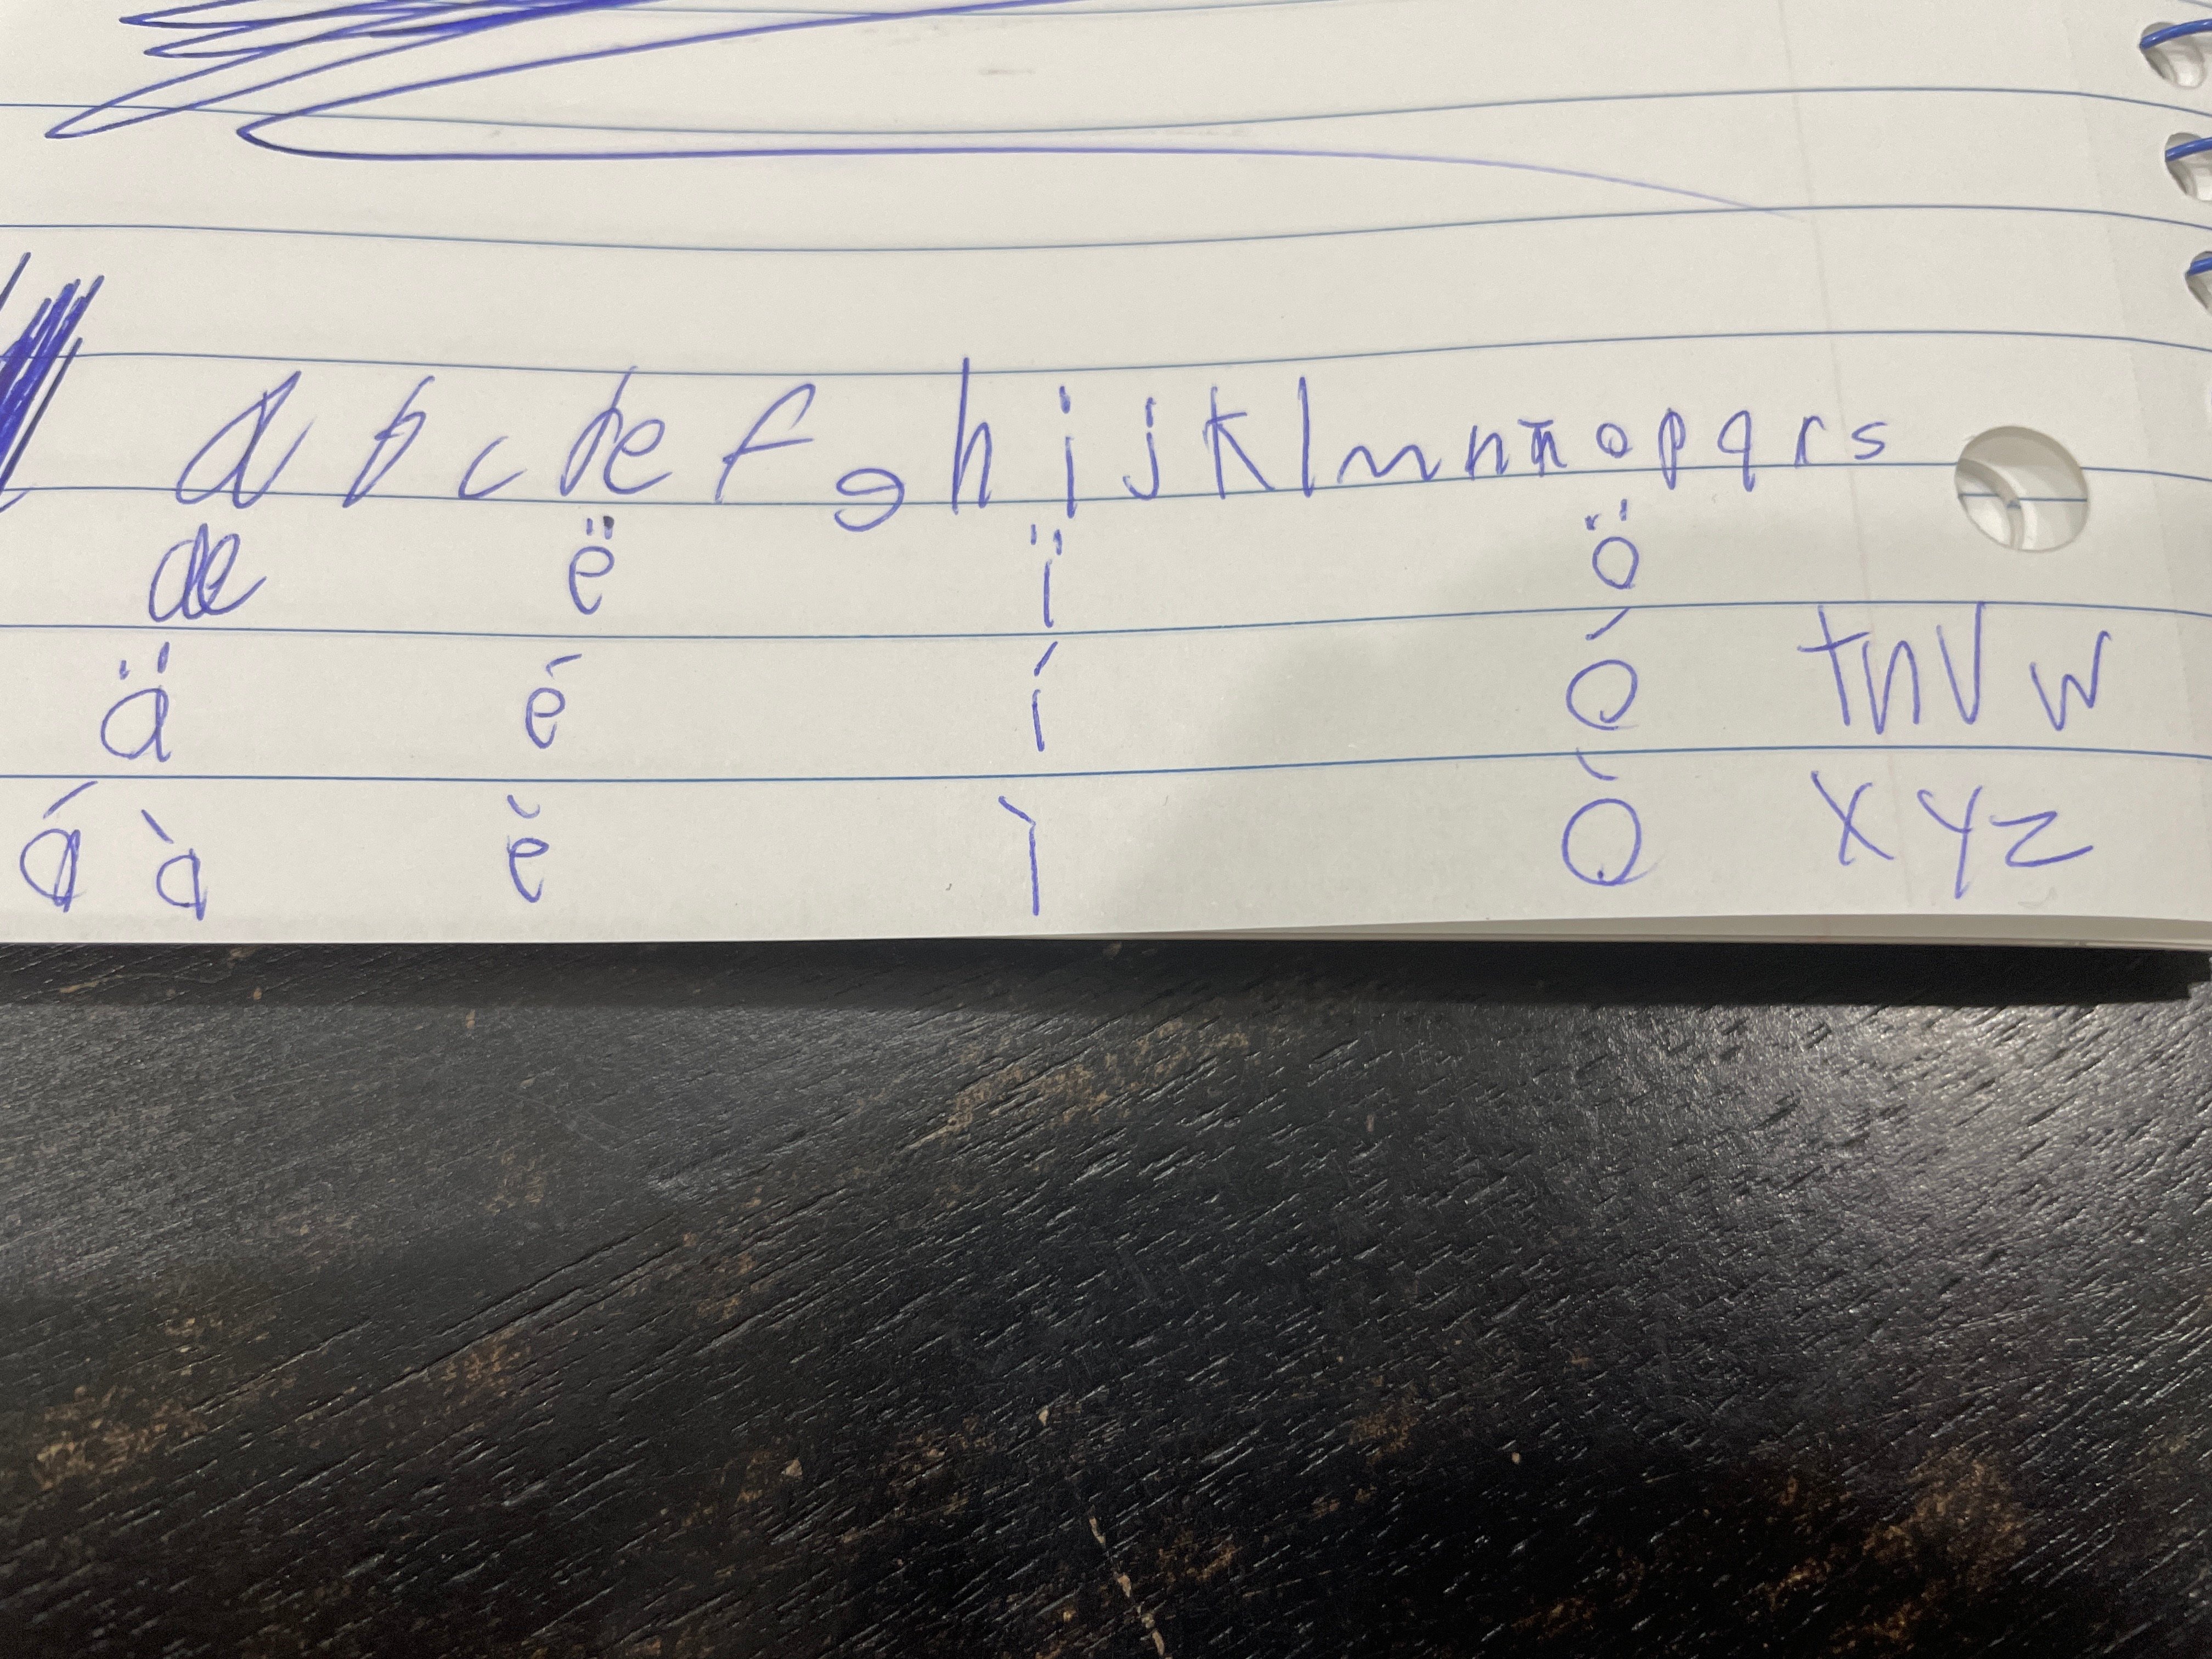 a b c d e f g h i j k l m n ñ o p q r s
æ ë ï ö
ä é í ó t u v w
á à è ì ò x y z